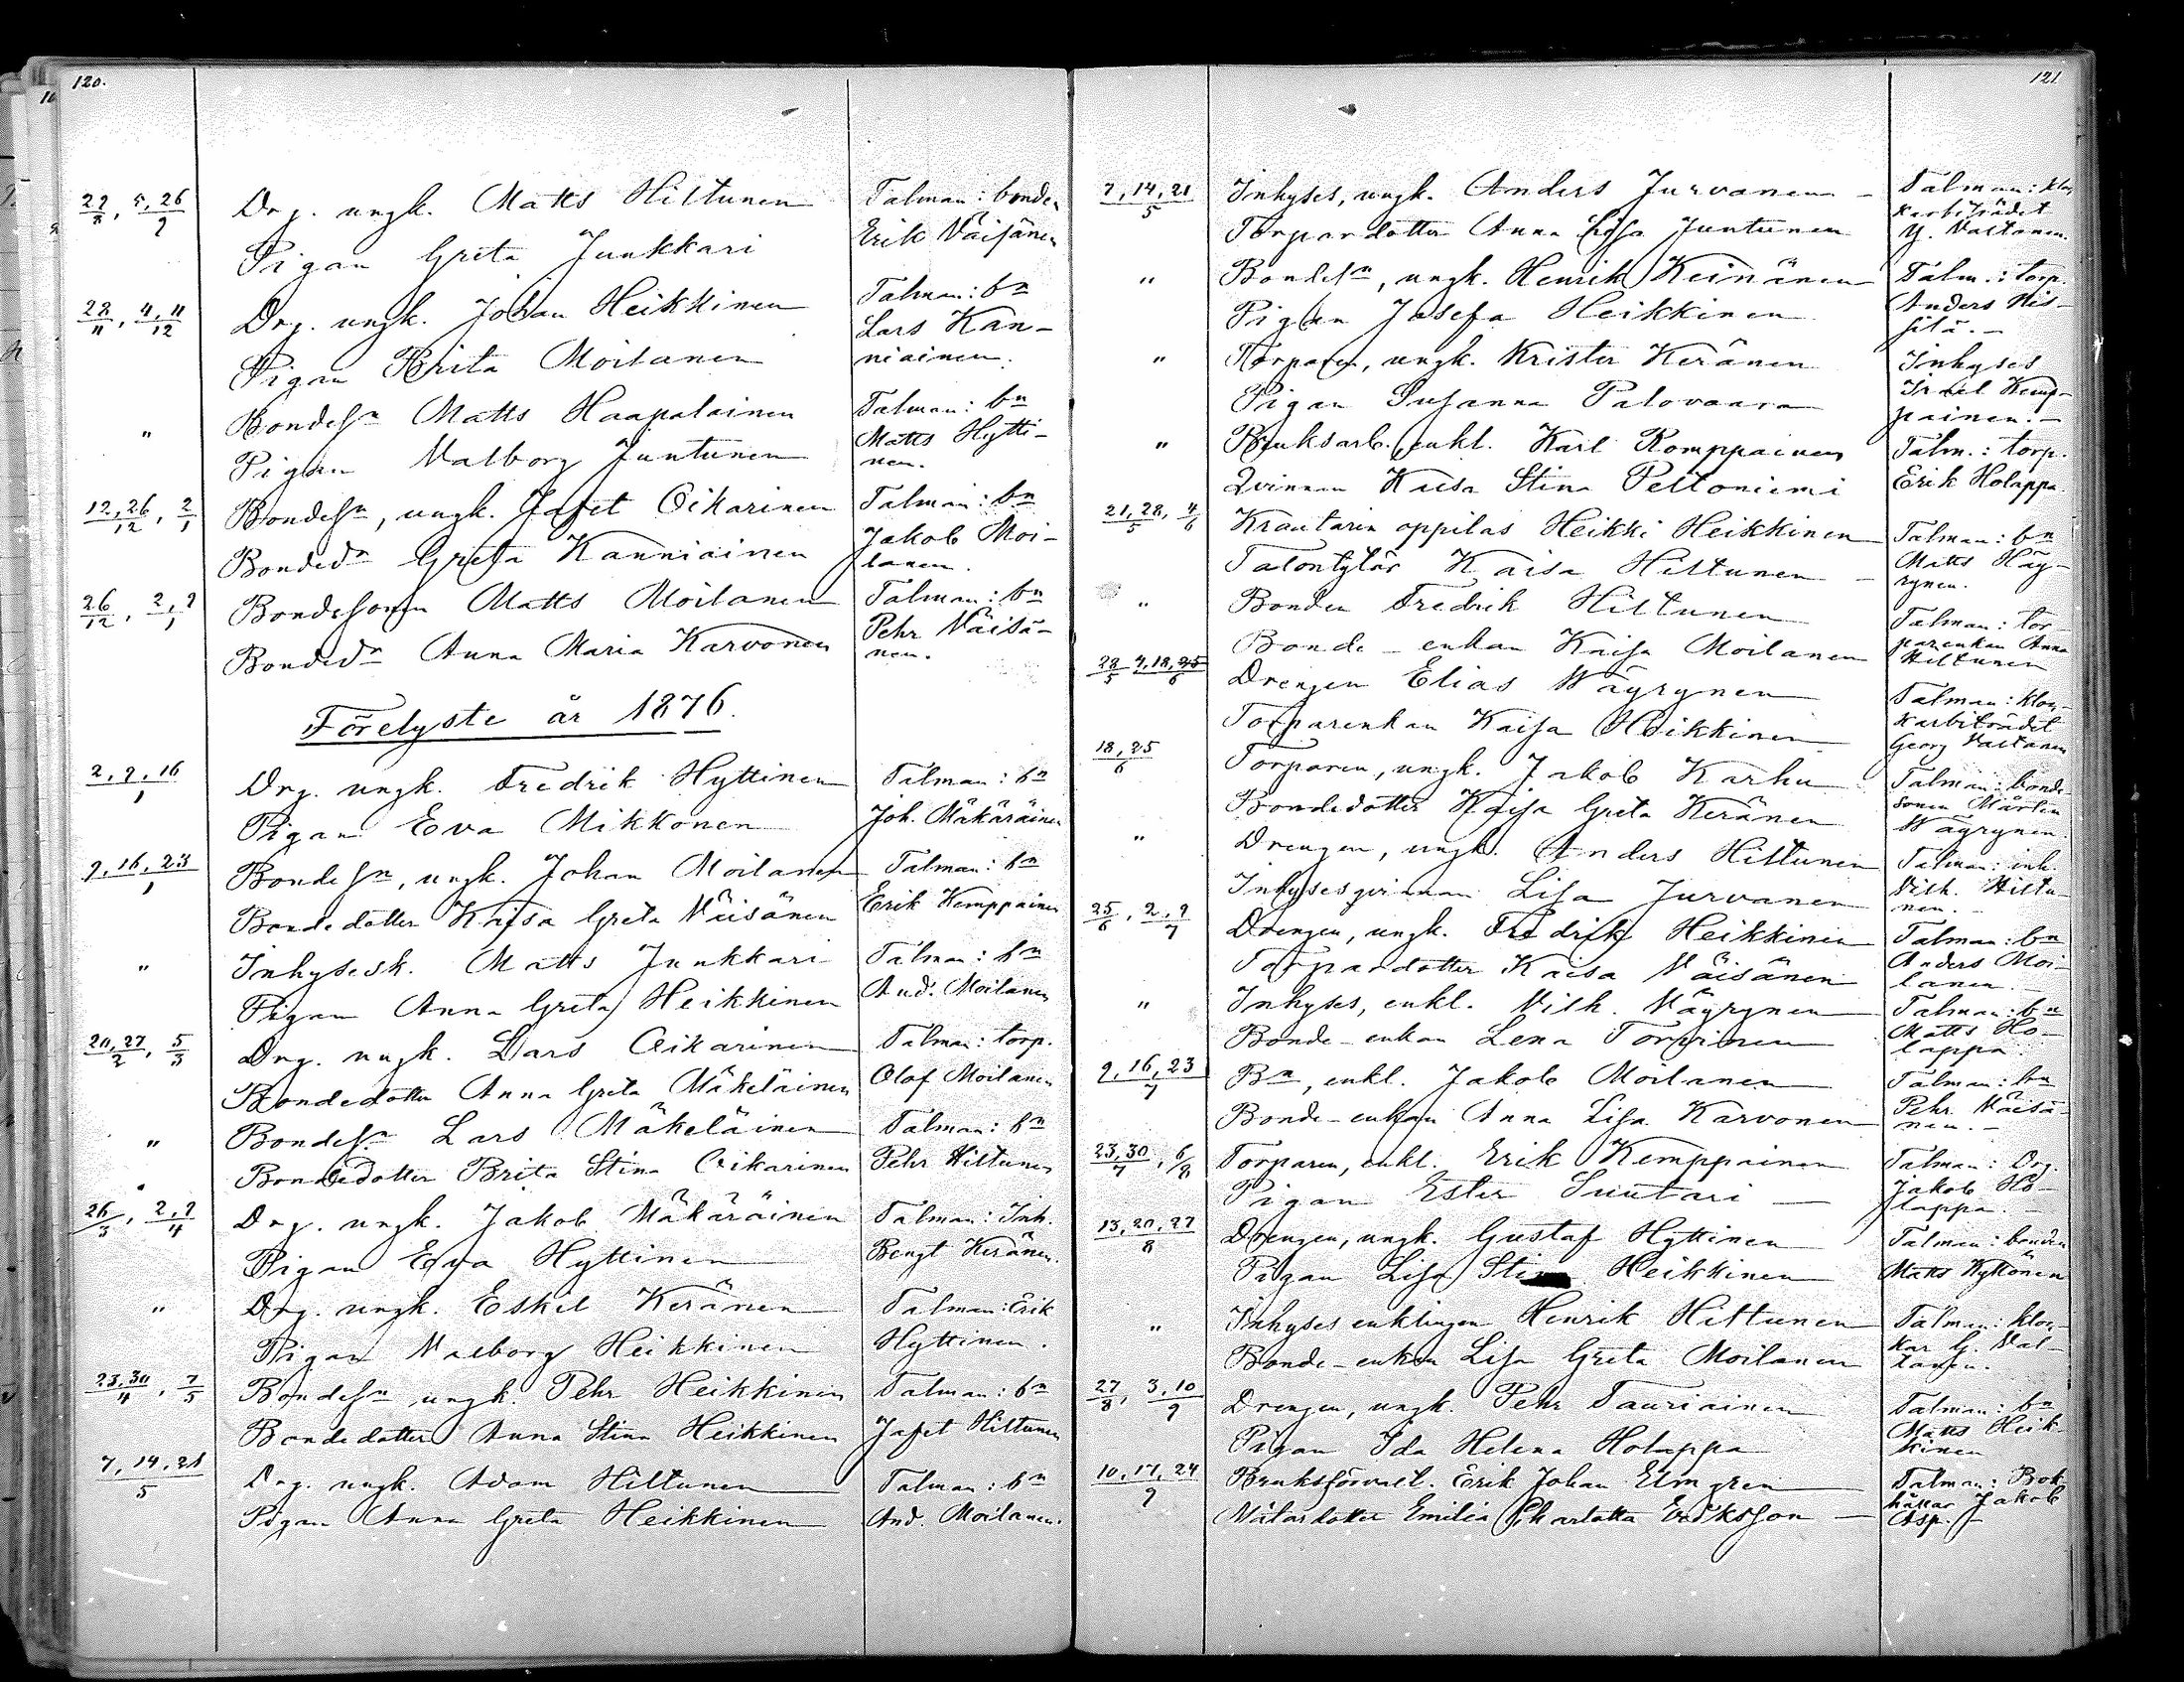 120.
22/8, 5,26/9 Drg. ungk. Matts Hiltunen Talman: bonden
Pigan Greta Junkkari Erik Väisänen
28/11, 4,11/12 Drg. ungk. Johan Heikkinen Talman: bn
Lars Kan-
Pigan Brita Moilanen niainen.
" Bondesn Matts Haapalainen Talman: bn
Matts Hytti-
Pigan Valborg Juntunen nen.
12,26/12, 2/1 Bondesn, ungk. Jafet Oikarinen Talman: bn
Jakob Moi-
Bondedr Greta Kanniainen lanen.
26/12, 2,9/1 Bondesonen Matts Moilanen Talman: bn
Pehr Väisä-
Bondedr Anna Maria Karvonen nen.
Förelyste år 1876.
2,9,16/1 Drg. ungk. Fredrik Hyttinen Talman: bn
Pigan Eva Mikkonen Joh. Mäkäräinen
9,16,23/1 Bondesn, ungk. Johan Moilanen Talman: bn
Bondedotter Kajsa Greta Väisänen Erik Kemppainen
" Inhysesk. Matts Junkkari Talman: bn
Pigan Anna Greta Heikkinen And. Moilanen
20,27/2, 5/3 Drg. ungk. Lars Oikarinen Talman: torp.
Bondedotter Anna Greta Mäkeläinen Olof Moilanen
" Bondesn Lars Mäkeläinen Talman: bn
Bondedotter Brita Stina Oikarinen Pehr Hiltunen
26/3, 2,9/4 Drg. ungk. Jakob Mäkäräinen Talman: Inh.
Pigan Eva Hyttinen Bengt Keränen.
" Drg. ungk. Eskil Keränen Talman: Erik
Pigan Valborg Heikkinen Hyttinen.
23,30/4, 7/5 Bondesn, ungk. Pehr Heikkinen Talman: bn
Bondedotter Anna Stina Heikkinen Jafet Hiltunen
7,14,21/5 Drg. ungk. Adam Hiltunen Talman: bn
Pigan Anna Greta Heikkinen And. Moilanen.
121
7,14,21/5 Inhyses, ungk. Anders Jurvanen Talman: kloc-
karbiträdet
Torpardotter Anna Lisa Juntunen Y. Valtanen.
" Bondesn, ungk. Henrik Keinänen Talm.: torp.
Anders His-
Pigan Josefa Heikkinen silä.
" Torparen, ungk. Krister Keränen Inhyses
Israel Kemp-
Pigan Susanna Palovaara painen.
" Bruksarb. enkl. Karl Romppainen Talm.: torp.
Qvinnan Kaisa Stina Peltoniemi Erik Holappa.
21,28/5, 4/6 Kräutärin oppilas Heikki Heikkinen Talman: bn
Matts Häy-
Talontytär Kaisa Hiltunen rynen.
" Bonden Fredrik Hiltunen Talman: tor-
parenkan Anna
Bonde-enkan Kaisa Moilanen Hiltunen
28/5 4,18,25/6 Drengen Elias Wäyrynen Talman: kloc-
karbiträdet
Torparenkan Kaisa Heikkinen Georg Valtanen
18,25/6 Torparen, ungk. Jakob Karhu Talman: bonde-
sonen Mårten
Bondedotter Kaisa Greta Keränen Wäyrynen.
" Drengen, ungk. Anders Hiltunen Talman: inh.
Vilh. Hiltu-
Inhysesqvinnan Lisa Jurvanen nen.
25/6, 2,9/7 Drengen, ungk. Fredrik Heikkinen Talman: bn
Anders Moi-
Torpardotter Kaisa Väisänen lanen.
" Inhyses, enkl. Vilh. Väyrynen Talman: bn
Matts Ho-
Bonde-enkan Lena Torppinen lappa.
9,16,23/7 Bn, enkl. Jakob Moilanen Talman: bn
Pehr Väisä-
Bonde-enkan Anna Lisa Karvonen nen.
23,30/7, 6/8 Torparen, enkl. Erik Kemppainen Talman: Drg.
Jakob Ho-
Pigan Ester Suutari lappa.
13,20,27/8 Drengen, ungk. Gustaf Hyttinen Talman: bonden
Pigan Lisa Stina Heikkinen Matts Kyllönen
" Inhyses enklingen Henrik Hiltunen Talman: kloc-
kar G. Val-
Bonde-enkan Lisa Greta Moilanen tanen.
27/8, 3,10/9 Drengen, ungk. Pehr Tauriainen Talman: bn
Matts Heik-
Pigan Ida Helena Holappa kinen
10,17,24/9 Bruksförvalt. Erik Johan Elmgren Talman: Bok-
hållar Jakob
Målardotter Emilia Charlotta Eriksson Asp.